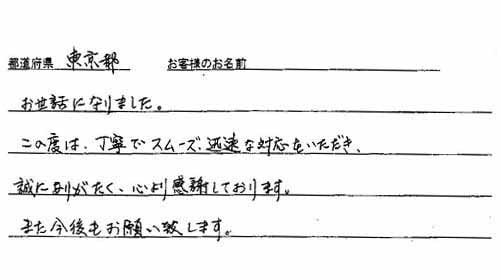 都道府県 東京都 お客様のお名前
お世話になりました。
この度は、丁寧でスムーズ、迅速な対応をいただき、
誠にありがたく、心より感謝しております。
また今後もお願い致します。